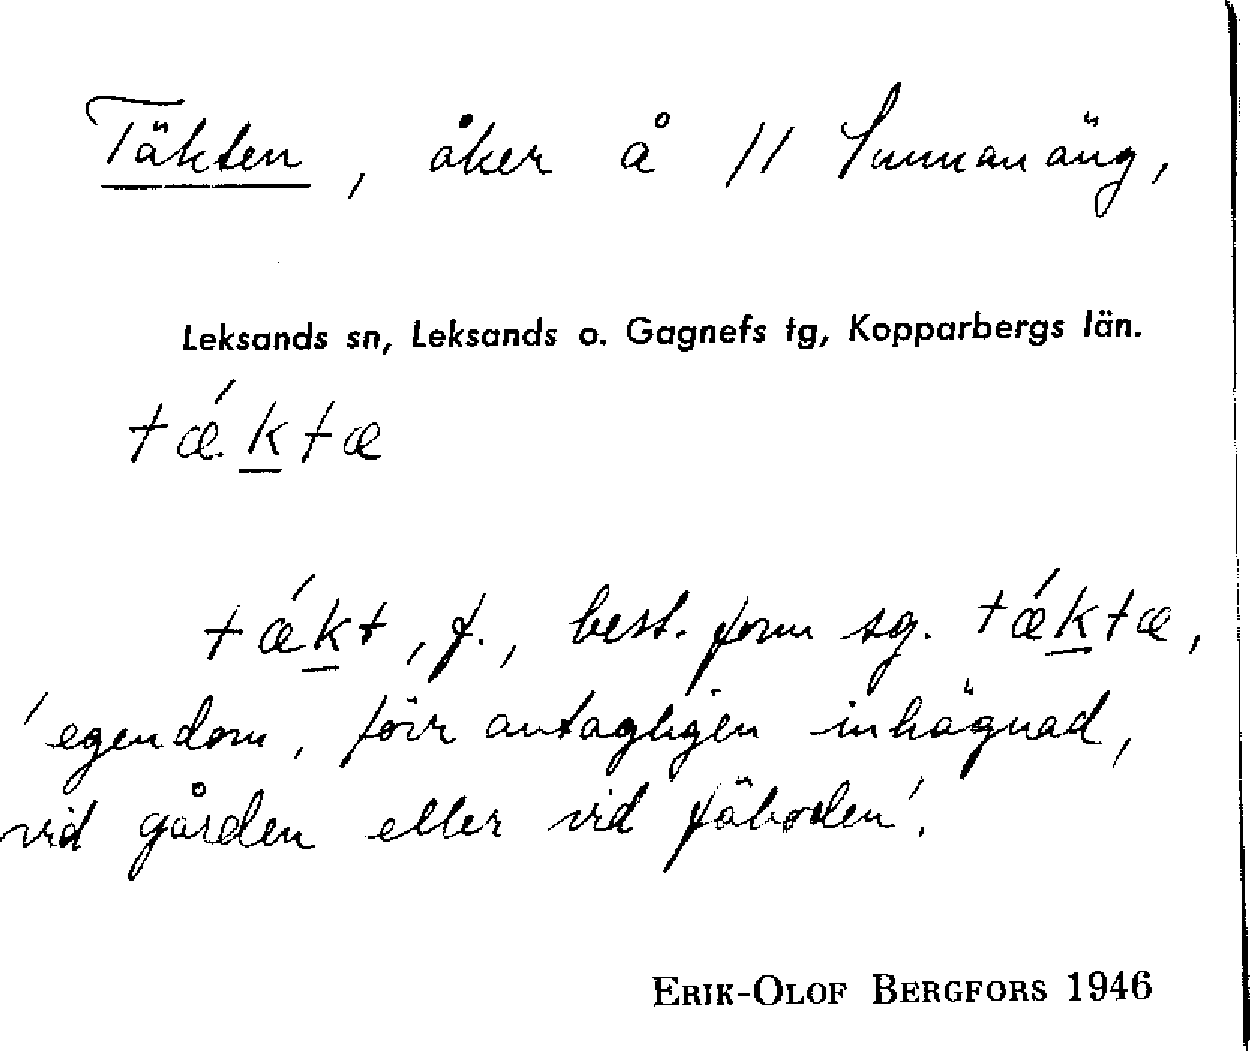 Täkten, åker å 11 Sunnanäng,
Leksands sn, Leksands o. Gagnefs tg, Kopparbergs län.
tǽ.k̲tæ
tǽk̲t, f., best. form sg. tǽk̲tæ,
'egendom, förr antagligen inhägnad,
vid gården eller vid fäboden'.
ERIK-OLOF BERGFORS 1946